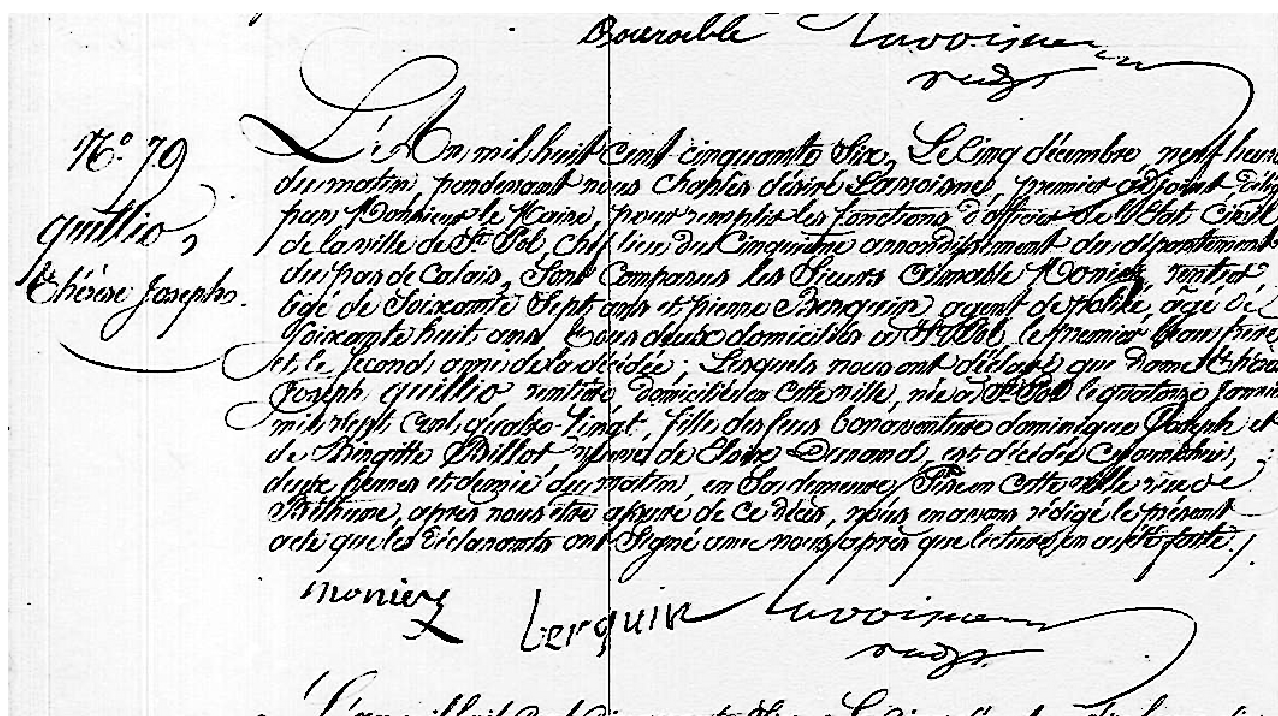 Bouroible Lavoisne
N.° 79
quillio,
Thérèse Joseph.
L'An mil huit cent cinquante Six, Le Cinq décembre, neuf heures
du matin, pardevant nous Charles désiré Lavoisne, premier adjoint délég
par Monsieur le Maire, pour remplir les fonctions d'officier de l'Etat Civil
de la ville de St Pol, chef lieu du Cinquième arrondissement du département
du pas de Calais, Sont Comparus les Sieurs Aimable Moniez, rentier
âgé de Soixante Sept ans et pierre Berquin, agent de police, âgé de
Soixante huit ans tous deux domiciliés à St Pol, le premier beau frère
et le second ami de la décédée; Lesquels nous ont déclaré que dame Thérèse
Joseph quillio rentière domiciliée en cette ville, née à St Pol le quatorze Janvier
mil sept cent quatre-vingt, fille des feus bonaventure dominique Joseph et
de Brigitte Billot veuve de Durand, est décédée aujourd'hui,
deux heures et demie du matin, en Sa demeure, Sise en cette ville rue de
Béthune, après nous être assuré de ce décès, nous en avons rédigé le présent
acte que les déclarants ont Signé avec nous après que lecture en a été faite./.
moniez berquin Lavoisne